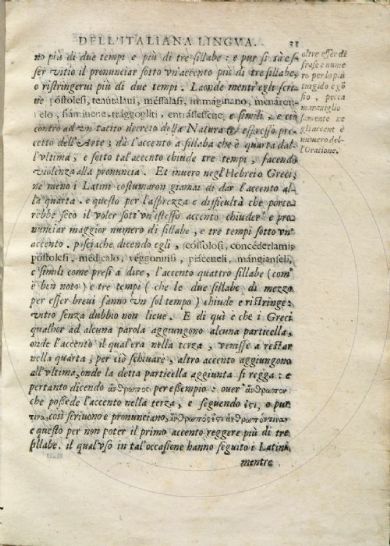 DELL'ITALIANA LINGVA. 21
no più di due tempi e più di tre sillabe: e pur si sà es-
ser vitio il pronunciar sotto vn'accento più di tre sillabe,
o ristringerui più di due tempi. Laonde mentr'egli scri-
ue pòstolesi, tenuèlaui, mèssalasi, immàginano, menàron-
contro ad vn tacito decreto della Natura & espresso pre
cetto dell'Arte; dà l'accento a sillaba che è quarta dal-
l'vltima, e sotto tal'accento chiude tre tempi, facendo
violenza alla pronuncia. Et inuero negl'Hebrei o Greci;
ne meno i Latini costumaron giamai di dar l'accento al-
la quarta. e questo per l'asprezza e difficultà che porte
rebbe seco il voler sott'vn'istesso accento chiuder e pro
nunciar maggior numero di sillabe, e tre tempi sotto vn'
accento. posciache dicendo egli, concèderlami
e simili come presi a dire, l'accento quattro sillabe (com'
è ben noto) e tre tempi (che le due sillabe di mezzo
per esser breui fanno vn sol tempo) chiude e ristringe:
vitio senza dubbio non lieue. E di quì e che i Greci
qualhor ad alcuna parola aggiungono alcuna particella,
onde l'accento il qual'era nella terza, venisse a restar
nella quarta; per ciò schiuare, altro accento aggiungono
all'vltima, onde la detta particella aggiunta si regga: e
pertanto dicendo ἄνθρωπος per esempio: ouer ἄνθρωπον
che possede l'accento nella terza, e seguendo ἐςὶ, o pur
τινα, così scriuono e pronuntiano,
e questo per non poter il primo accento reggere più di tre
sillabe. il qual'vso in tal'occasione hanno seguito i Latini
mentre
oltre esser di
frase e nume
ro per lo più